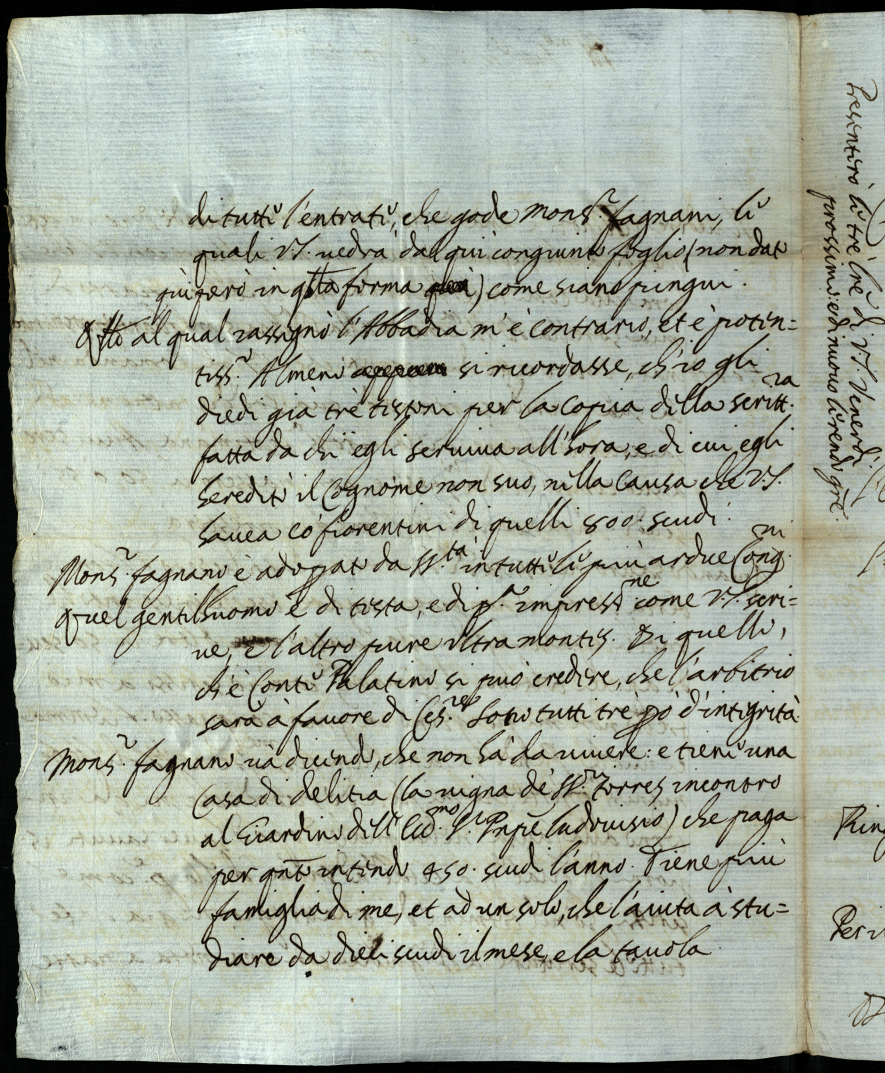 di tutte l'entrate, che gode Mons.r fagnani, le
quali V.S. vedrà dal qui congiunto foglio (non date
giù però in q.ta forma) come siano pingui.
Q.llo al qual rassignò l'Abbadia m'è contrario, et è poten=
tiss.o Almeno si ricordasse, ch'io gli
diedi già trè testoni per la copia della scritt.ra
fatta da chi egli serviva all'hora, e di cui egli
heredito il Cognome non suo, nella Causa che V.S.
havea co' fiorentini di quelli 800. scudi.
Mons.r fagnano è adoprato da S.S.tà in tutte le più ardue Cong.ni
Quel gentilhuomo è di testa, e di p.a impress.ne come V.S. scri=
ve, e l'altro pure Ultramontis. Di quello,
ch'è Conte Palatino si può credere, che l'arbitrio
sarà à favore di Ces.re Sono tutti trè però d'integrità
Mons.r fagnano và dicendo, che non hà da vivere: e tiene una
Casa di delitia (la vigna de' SS.ri Torres incontro
al Giardino dell'Ecc.mo S.r Prñpe Ludovisio) che paga
per qnto intendo 450. scudi l'anno. Tiene più
famiglia di me, et ad un solo, che l'aiuta à stu=
diare da dieci scudi il mese, e la tavola
Presentirò le tre l.re di V.S. Venerdi
prossimo, e di nuovo le rendo gre.